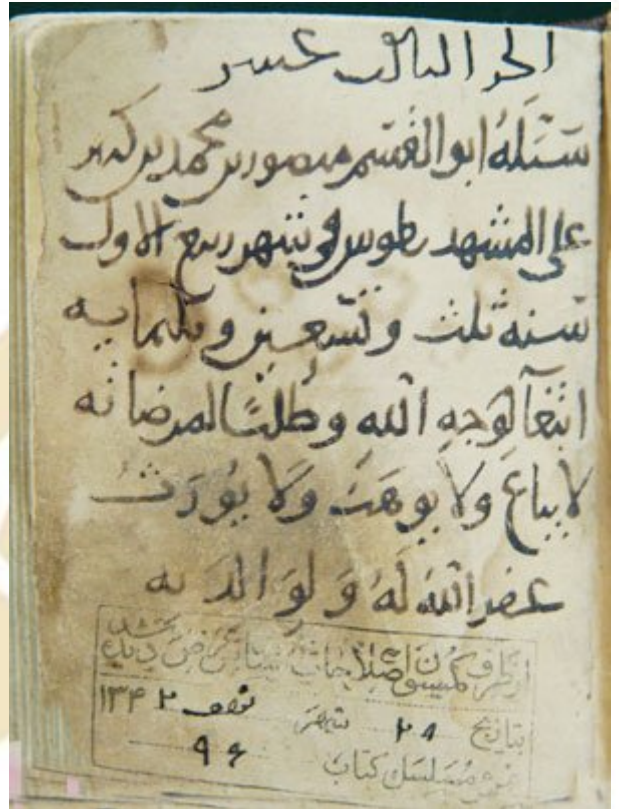 الجز الثالث عشر
سبّله ابو القسم منصور بن محمد بن كثير
على المشهد بطوس في شهر ربيع الاول
سنه ثلث وتسعين وثلثمايه
ابتغآ لوجه الله وطلبًا لمرضاته
لا يباع ولا يوهب ولا يورث
غفر الله له ولوالديه
از طرف کمیسیون اصلاحات
بتاریخ ۲۹ شهر ۱۳۴۲
نمره مسلسل کتاب ۹۶